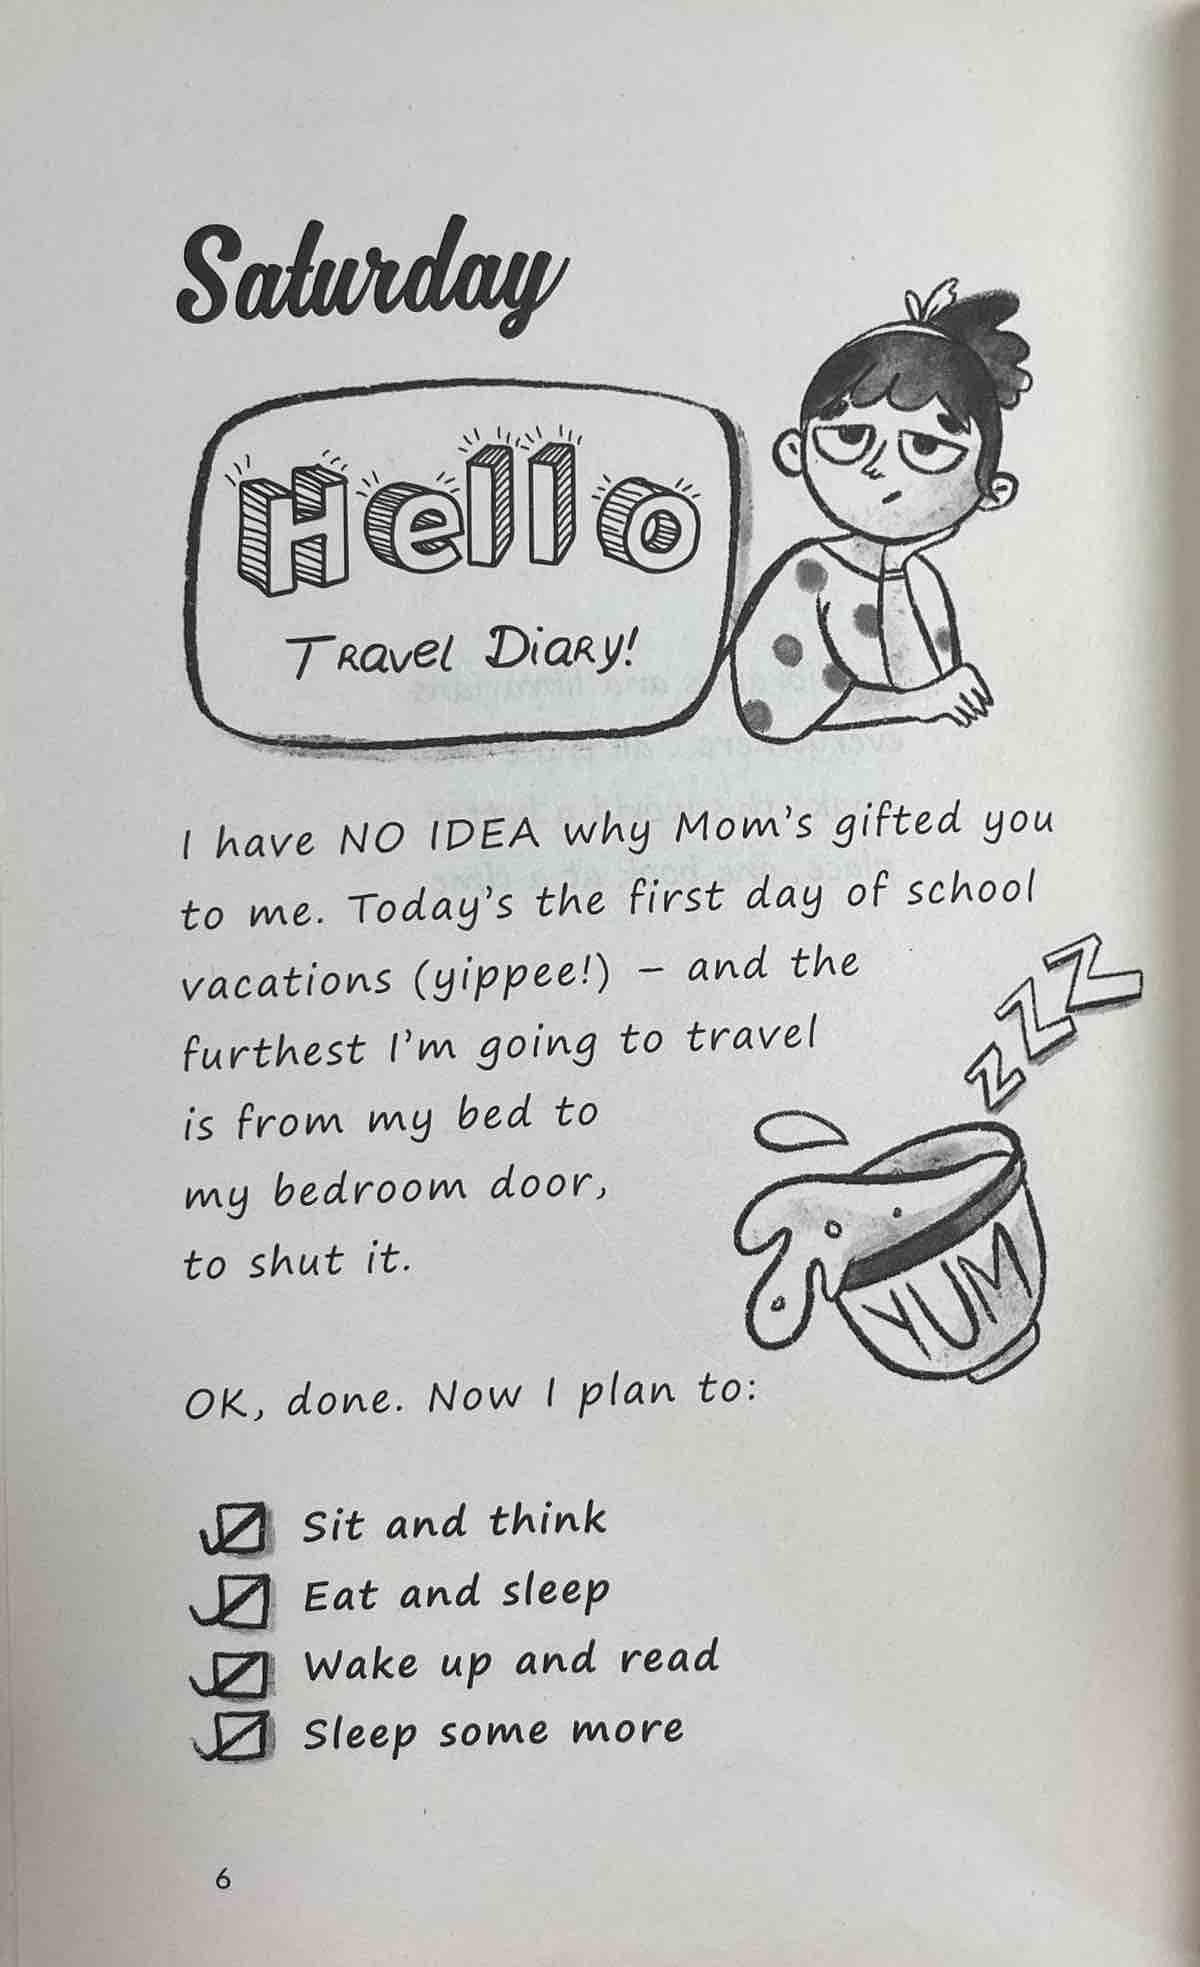 Saturday
Hello
Travel Diary!
I have NO IDEA why Mom's gifted you
to me. Today's the first day of school
vacations (yippee!) – and the
furthest I'm going to travel
is from my bed to
my bedroom door,
to shut it.
ZZZ
YUM
OK, done. Now I plan to:
Sit and think
Eat and sleep
Wake up and read
Sleep some more
6